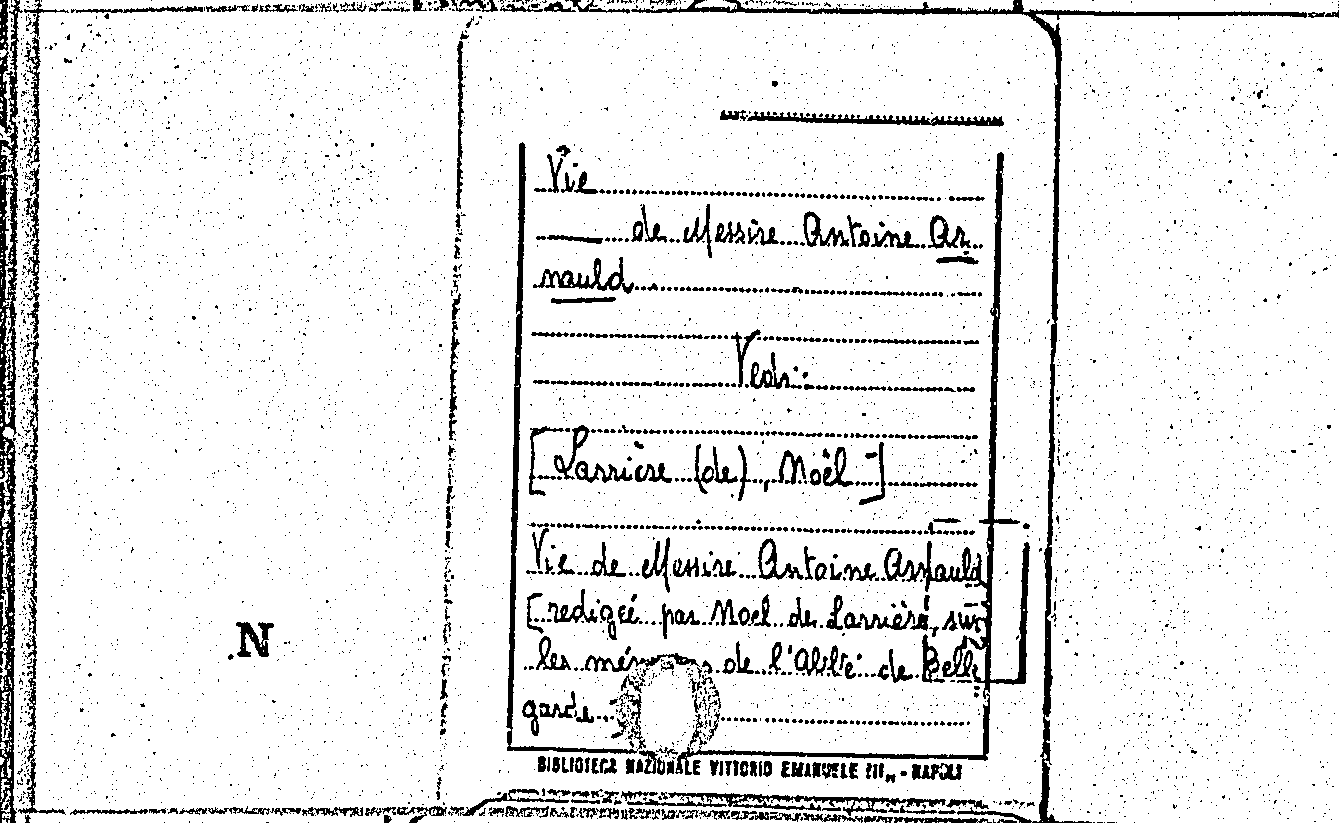 Vie
de Messire Antoine Ar
nauld
Vedi:
[Larrière (de), Noël]
Vie de Messire Antoine Arnauld
[redigeé par Noël de Larrière, sur
les mémoires de l'Abbé de Belle
garde
N
BIBLIOTECA NAZIONALE VITTORIO EMANUELE III, - NAPOLI